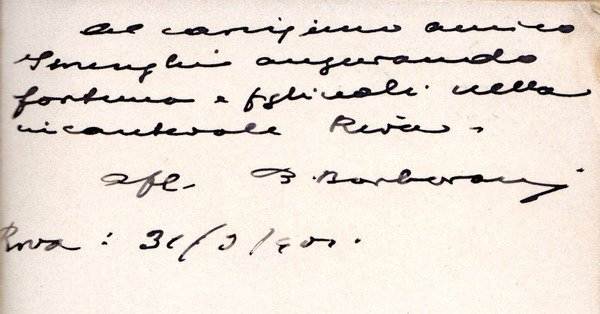 al carissimo amico
Smenghi augurando
fortuna e figlinoli nella
incantevole Riva.
aff. B. Barberani
Riva: 31/3/